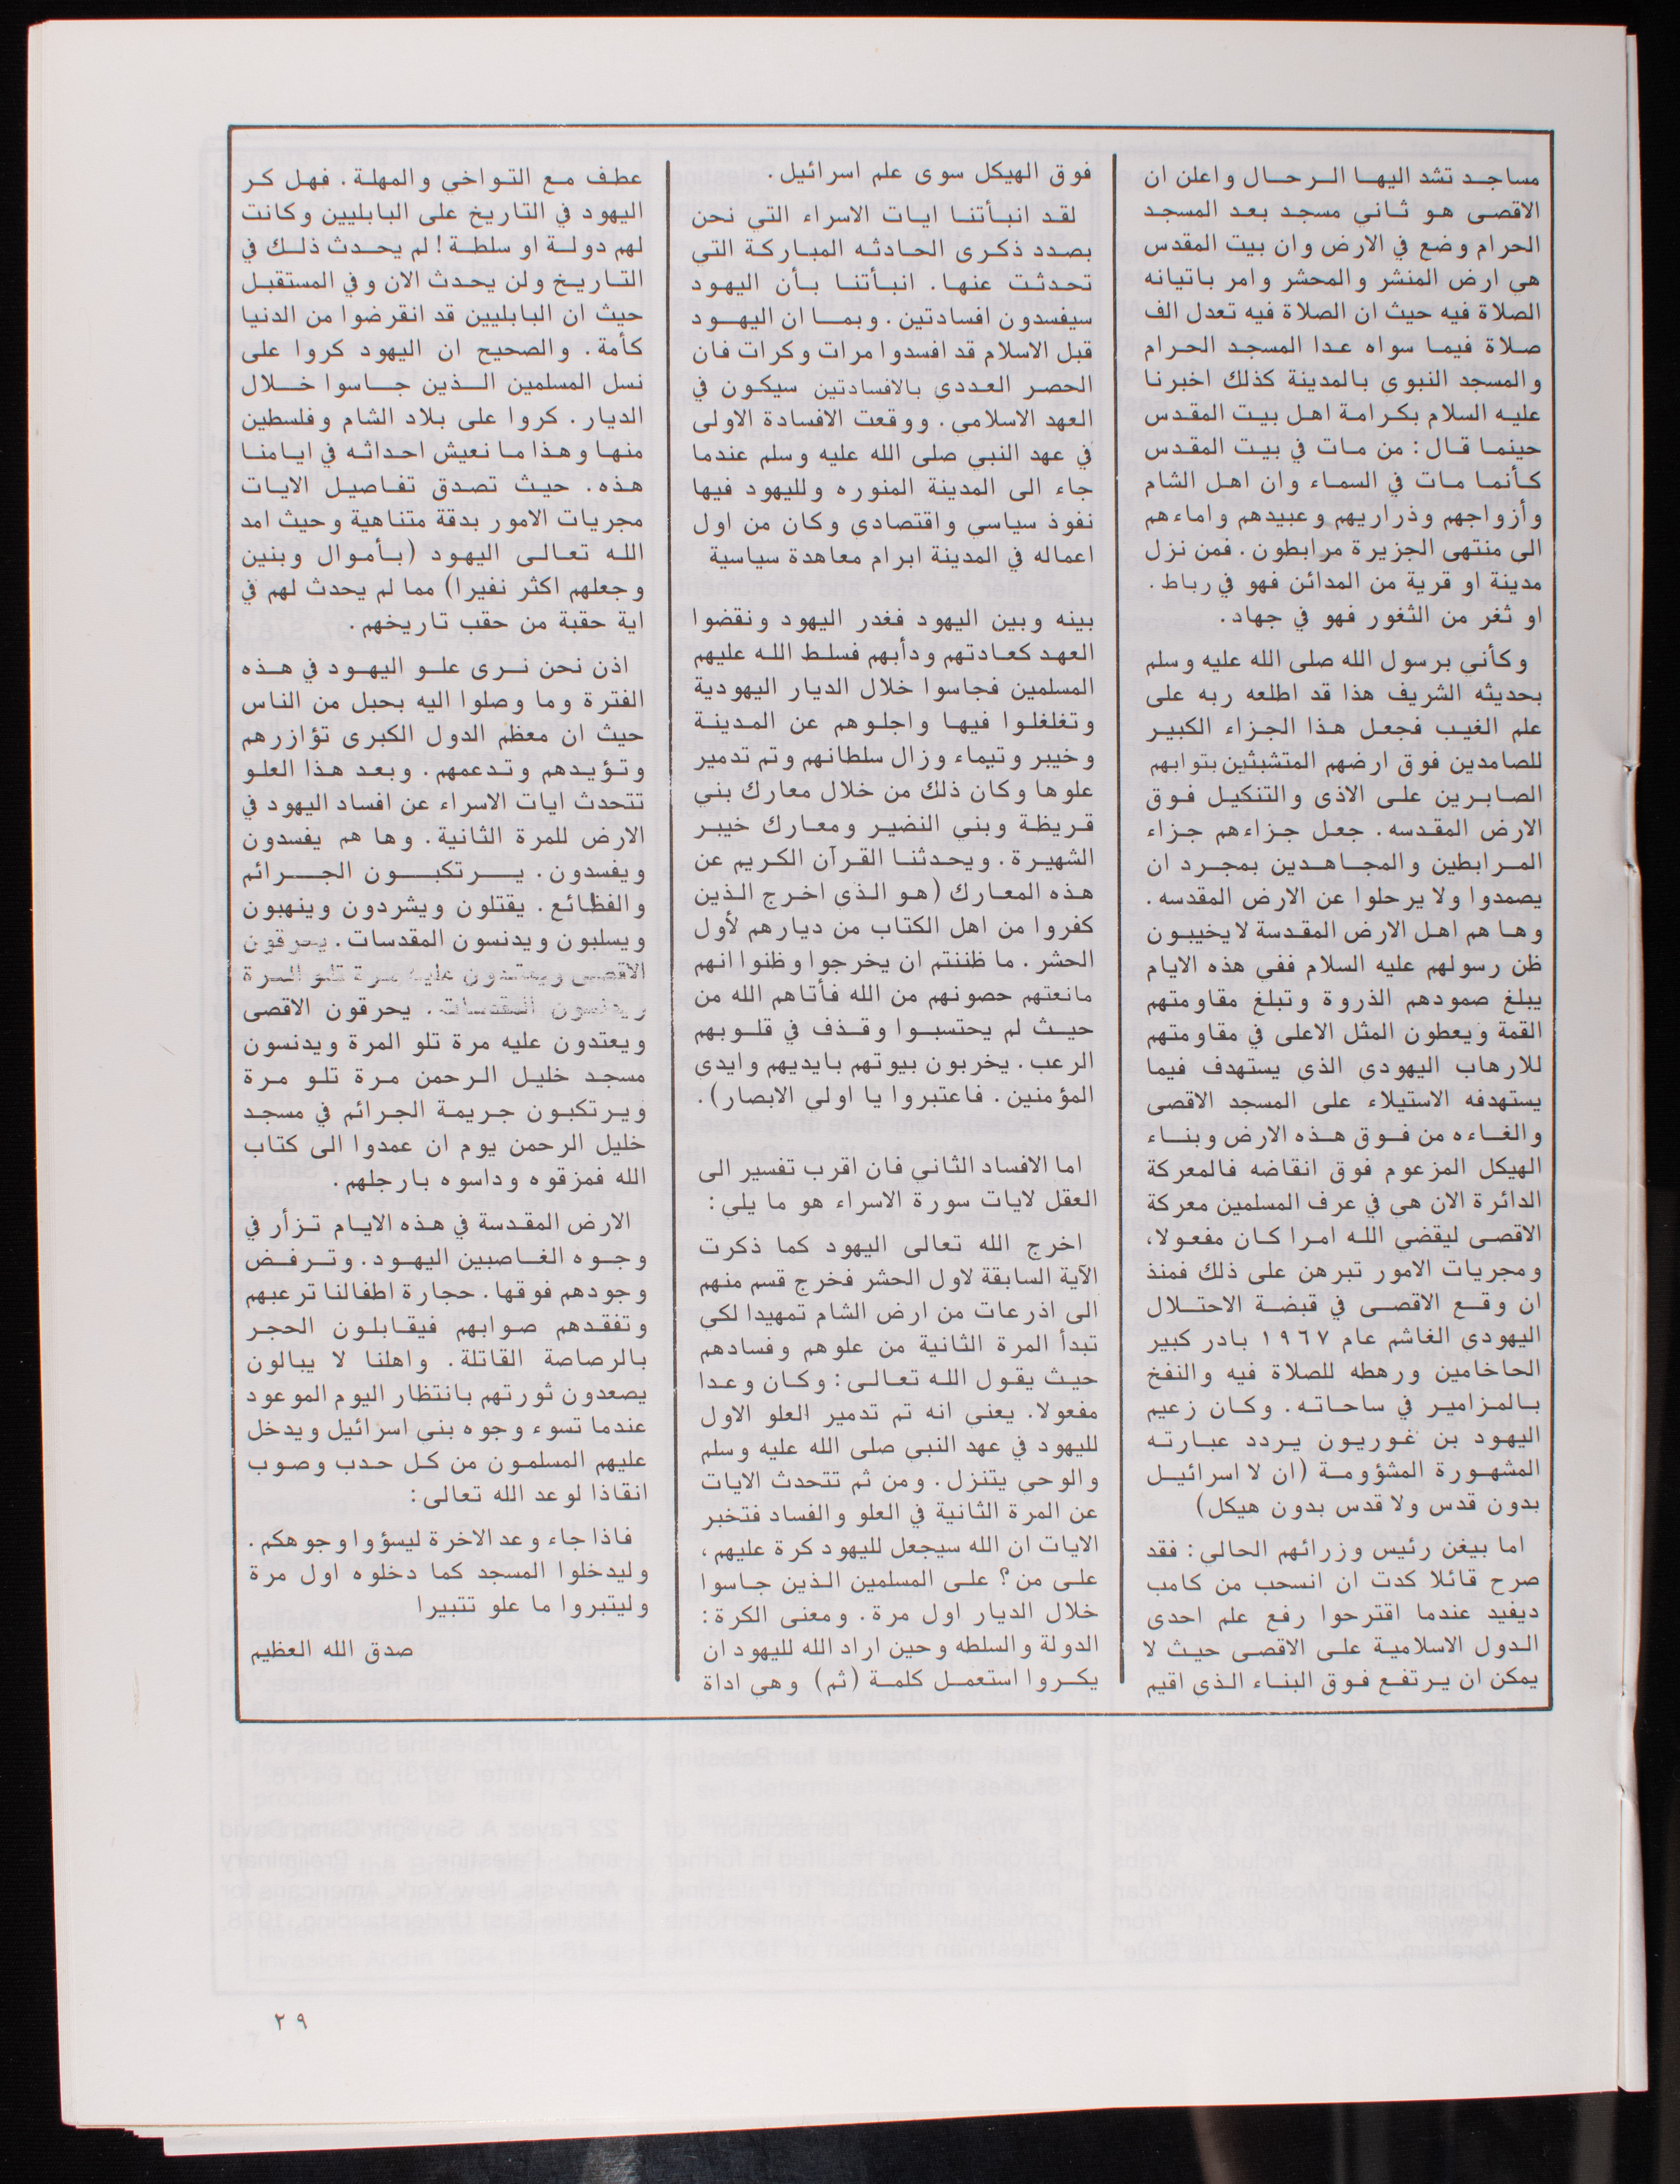 مساجد تشد اليها الرحال واعلن ان
الاقصى هو ثاني مسجد بعد المسجد
الحرام وضع في الارض وان بيت المقدس
هي ارض المنشر والمحشر وامر باتيانه
الصلاة فيه حيث ان الصلاة فيه تعدل الف
صلاة فيما سواه عدا المسجد الحرام
والمسجد النبوى بالمدينة كذلك اخبرنا
عليه السلام بكرامة اهل بيت المقدس
حينما قال : من مات في بيت المقدس
كأنما مات في السماء وان اهل الشام
وأزواجهم وذراريهم وعبيدهم واماءهم
الى منتهى الجزيرة مرابطون . فمن نزل
مدينة او قرية من المدائن فهو في رباط .
او ثغر من الثغور فهو في جهاد .
وكأني برسول الله صلى الله عليه وسلم
بحديثه الشريف هذا قد اطلعه ربه على
علم الغيب فجعل هذا الجزاء الكبير
للصامدين فوق ارضهم المتشبثين بتوابهم
الصابرين على الاذى والتنكيل فوق
الارض المقدسه . جعل جزاءهم جزاء
المرابطين والمجاهدين بمجرد ان
يصمدوا ولا يرحلوا عن الارض المقدسه .
وها هم اهل الارض المقدسة لا يخيبون
ظن رسولهم عليه السلام ففي هذه الايام
يبلغ صمودهم الذروة وتبلغ مقاومتهم
القمة ويعطون المثل الاعلى في مقاومتهم
للارهاب اليهودي الذى يستهدف فيما
يستهدفه الاستيلاء على المسجد الاقصى
والغاءه من فوق هذه الارض وبناء
الهيكل المزعوم فوق انقاضه فالمعركة
الدائرة الان هي في عرف المسلمين معركة
الاقصى ليقضي الله امرا كان مفعولا،
ومجريات الامور تبرهن على ذلك فمنذ
ان وقع الاقصى في قبضة الاحتلال
اليهودى الغاشم عام ١٩٦٧ بادر كبير
الحاخامين ورهطه للصلاة فيه والنفخ
بالمزامير في ساحاته . وكان زعيم
اليهود بن غوريون يردد عبارته
المشهورة المشؤومة (ان لا اسرائيل
بدون قدس ولا قدس بدون هيكل)
اما بيغن رئيس وزرائهم الحالي : فقد
صرح قائلا كدت ان انسحب من كامب
ديفيد عندما اقترحوا رفع علم احدى
الدول الاسلامية على الاقصى حيث لا
يمكن ان يرتفع فوق البناء الذى اقيم
فوق الهيكل سوى علم اسرائيل .
لقد انبأتنا ايات الاسراء التي نحن
بصدد ذكرى الحادثه المباركة التي
تحدثت عنها . انبأتنا بأن اليهود
سيفسدون افسادتين . وبما ان اليهود
قبل الاسلام قد افسدوا مرات وكرات فان
الحصر العددى بالافسادتين سيكون في
العهد الاسلامي . ووقعت الافسادة الاولى
في عهد النبي صلى الله عليه وسلم عندما
جاء الى المدينة المنوره ولليهود فيها
نفوذ سياسي واقتصادى وكان من اول
اعماله في المدينة ابرام معاهدة سياسية
بينه وبين اليهود فغدر اليهود ونقضوا
العهد كعادتهم ودأبهم فسلط الله عليهم
المسلمين فجاسوا خلال الديار اليهودية
وتغلغلوا فيها واجلوهم عن المدينة
وخيبر وتيماء وزال سلطانهم وتم تدمير
علوها وكان ذلك من خلال معارك بني
قريظة وبني النضير ومعارك خيبر
الشهيرة . ويحدثنا القرآن الكريم عن
هذه المعارك (هو الذى اخرج الذين
كفروا من اهل الكتاب من ديارهم لأول
الحشر . ما ظننتم ان يخرجوا وظنوا انهم
مانعتهم حصونهم من الله فأتاهم الله من
حيث لم يحتسبوا وقذف في قلوبهم
الرعب . يخربون بيوتهم بايديهم وايدى
المؤمنين . فاعتبروا يا اولي الابصار) .
اما الافساد الثاني فان اقرب تفسير الى
العقل لايات سورة الاسراء هو ما يلي :
اخرج الله تعالى اليهود كما ذكرت
الآية السابقة لاول الحشر فخرج قسم منهم
الى اذرعات من ارض الشام تمهيدا لكي
تبدأ المرة الثانية من علوهم وفسادهم
حيث يقول الله تعالى : وكان وعدا
مفعولا . يعني انه تم تدمير العلو الاول
لليهود في عهد النبي صلى الله عليه وسلم
والوحي يتنزل . ومن ثم تتحدث الايات
عن المرة الثانية في العلو والفساد فتخبر
الايات ان الله سيجعل لليهود كرة عليهم ،
على من ؟ على المسلمين الذين جاسوا
خلال الديار اول مرة . ومعنى الكرة :
الدولة والسلطه وحين اراد الله لليهود ان
يكروا استعمل كلمة (ثم) وهي اداة
عطف مع التواخي والمهلة . فهل كر
اليهود في التاريخ على البابليين وكانت
لهم دولة او سلطة ! لم يحدث ذلك في
التاريخ ولن يحدث الان وفي المستقبل
حيث ان البابليين قد انقرضوا من الدنيا
كأمة . والصحيح ان اليهود كروا على
نسل المسلمين الذين جاسوا خلال
الديار . كروا على بلاد الشام وفلسطين
منها وهذا ما نعيش احداثه في ايامنا
هذه . حيث تصدق تفاصيل الايات
مجريات الامور بدقة متناهية وحيث امد
الله تعالى اليهود (بأموال وبنين
وجعلهم اكثر نفيرا) مما لم يحدث لهم في
اية حقبة من حقب تاريخهم .
اذن نحن نرى علو اليهود في هذه
الفترة وما وصلوا اليه بحبل من الناس
حيث ان معظم الدول الكبرى تؤازرهم
وتؤيدهم وتدعمهم . وبعد هذا العلو
تتحدث ايات الاسراء عن افساد اليهود في
الارض للمرة الثانية . وها هم يفسدون
ويفسدون . يرتكبون الجرائم
والفظائع . يقتلون ويشردون وينهبون
ويسلبون ويدنسون المقدسات . يحرقون
الاقصى ويعتدون عليه مرة تلو المرة
ويدنسون المقدسات . يحرقون الاقصى
ويعتدون عليه مرة تلو المرة ويدنسون
مسجد خليل الرحمن مرة تلو مرة
ويرتكبون جريمة الجرائم في مسجد
خليل الرحمن يوم ان عمدوا الى كتاب
الله فمزقوه وداسوه بارجلهم .
الارض المقدسة في هذه الايام تزأر في
وجوه الغاصبين اليهود . وترفض
وجودهم فوقها . حجارة اطفالنا ترعبهم
وتفقدهم صوابهم فيقابلون الحجر
بالرصاصة القاتلة . واهلنا لا يبالون
يصعدون ثورتهم بانتظار اليوم الموعود
عندما تسوء وجوه بني اسرائيل ويدخل
عليهم المسلمون من كل حدب وصوب
انقاذا لوعد الله تعالى :
فاذا جاء وعد الاخرة ليسؤوا وجوهكم .
وليدخلوا المسجد كما دخلوه اول مرة
وليتبروا ما علو تتبيرا
صدق الله العظيم
٢٩